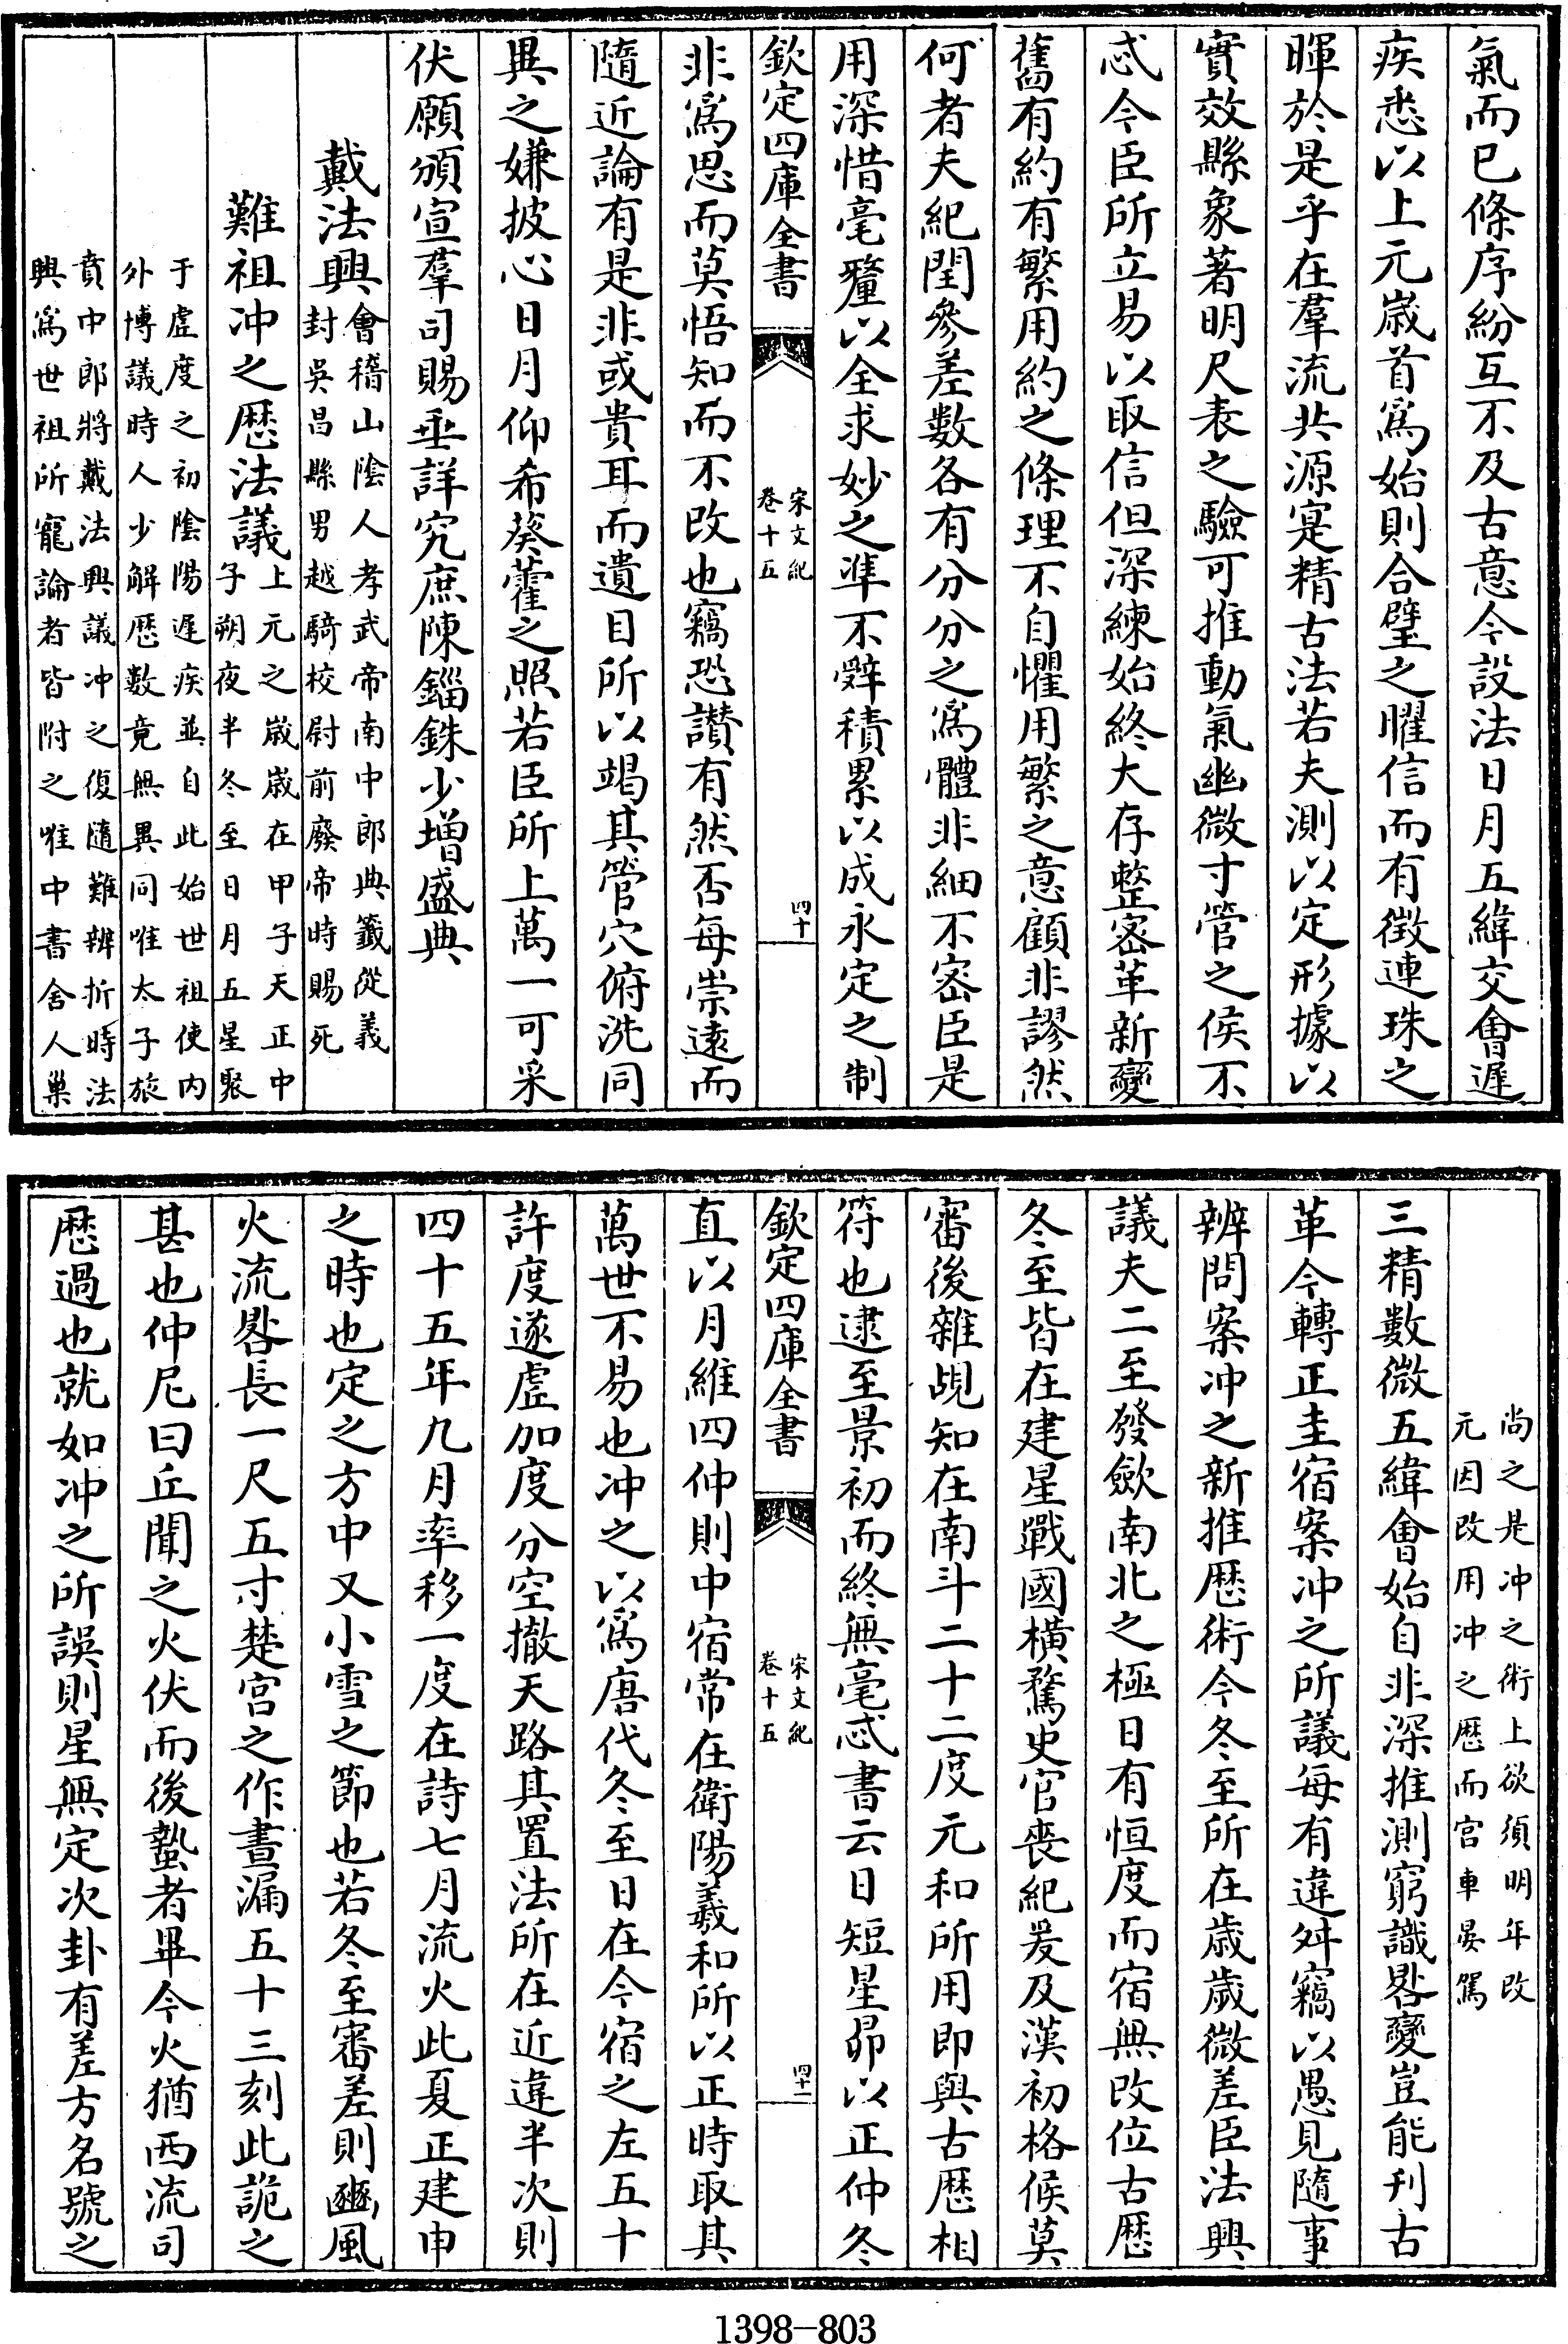 氣而已條序紛互不及古意今設法日月五緯交會遲
疾悉以上元嵗首爲始則合璧之曜信而有徴連珠之
暉於是乎在羣流共源寔精古法若夫測以定形據以
實效縣象著明尺表之驗可推動氣幽微寸管之候不
忒今臣所立易以取信但深練始終大存整密革新變
舊有約有繁用約之條理不自懼用繁之意顧非謬然
何者夫紀閏參差數各有分分之爲體非細不密臣是
用深惜毫釐以全求妙之凖不辤積累以成永定之制
欽定四庫全書
宋文紀
卷十五
四十
非爲思而莫悟知而不改也竊恐讃有然否每崇遠而
隨近論有是非或貴耳而遺目所以竭其管穴俯洗同
異之嫌披心日月仰希葵藿之照若臣所上萬一可采
伏願頒宣羣司賜垂詳究庶陳錙銖少增盛典
戴法興
會稽山陰人孝武帝南中郎典籤從義
封吳昌縣男越騎校尉前廢帝時賜死
難祖冲之厯法議
上元之嵗嵗在甲子天正中
子朔夜半冬至日月五星聚
于虛度之初陰陽遲疾並自此始世祖使内
外博議時人少解厯數竟無異同唯太子旅
賁中郎將戴法興議冲之復隨難辨折時法
興爲世祖所寵論者皆附之唯中書舍人巢
尚之是冲之術上欲須明年改
元因改用冲之厯而宫車晏駕
三精數微五緯會始自非深推測窮識晷變豈能刋古
革今轉正圭宿案冲之所議每有違舛竊以愚見隨事
辨問案冲之新推厯術今冬至所在歳歲微差臣法興
議夫二至發歛南北之極日有恒度而宿無改位古厯
冬至皆在建星戰國横騖史官喪紀爰及漢初格候莫
審後雜覘知在南斗二十二度元和所用即與古厯相
符也逮至景初而終無毫忒書云日短星昴以正仲冬
欽定四庫全書
宋文紀
卷十五
四十一
直以月維四仲則中宿常在衛陽羲和所以正時取其
萬世不易也冲之以爲唐代冬至日在今宿之左五十
許度遂虛加度分空撤天路其置法所在近違半次則
四十五年九月率移一度在詩七月流火此夏正建申
之時也定之方中又小雪之節也若冬至審差則豳風
火流晷長一尺五寸楚宫之作晝漏五十三刻此詭之
甚也仲尼曰丘聞之火伏而後蟄者畢今火猶西流司
厯過也就如冲之所誤則星無定次卦有差方名號之
1398-803